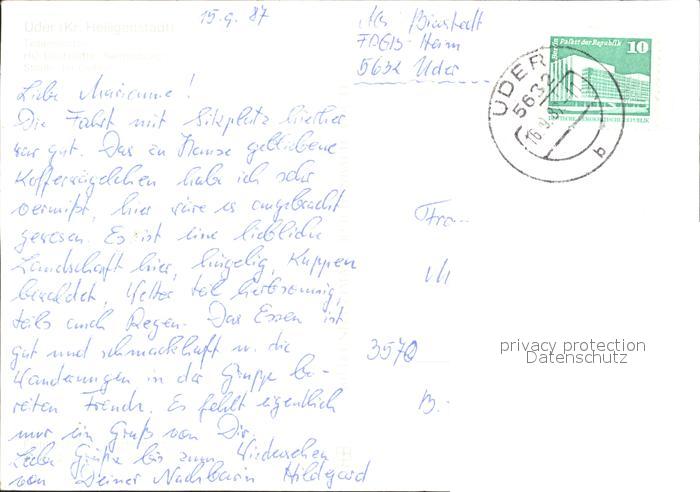 15.9.87
Uder (Kr. Heiligenstadt)
FDGB-Heim
5632 Uder
Berlin Palast der Republik 10
UDER
5632
16.9.87
b
Liebe Marianne!
Die Fahrt mit Sitzplatz hierher
war gut. Das zu Hause gebliebene
Kofferwägelchen habe ich sehr
vermißt, hier wäre es angebracht
gewesen. Es ist eine liebliche
Landschaft hier, hügelig, Kuppen
bewaldet, Wetter teils herbsonnig,
teils auch Regen. Das Essen ist
gut und schmackhaft u. die
Wanderungen in der Gruppe be-
reiten Freude. Es fehlt eigentlich
nur ein Gruß von Dir.
Liebe Grüße bis zum Wiedersehen
von Deiner Nachbarin Hildegard
3570
B.
privacy protection
Datenschutz